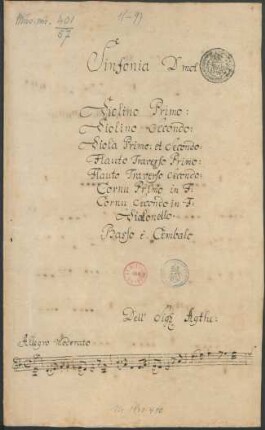 Mus. ms. 401
67
Sinfonia D mol
Violino Primo:
Violino Secondo:
Viola Primo: et Secondo:
Flauto Traverso Primo:
Flauto Traverso Secondo:
Cornu Primo in F:
Cornu Secondo in F:
Violoncello
Basso è Cembalo
Dell Sigr Agthe:
Allegro Moderato